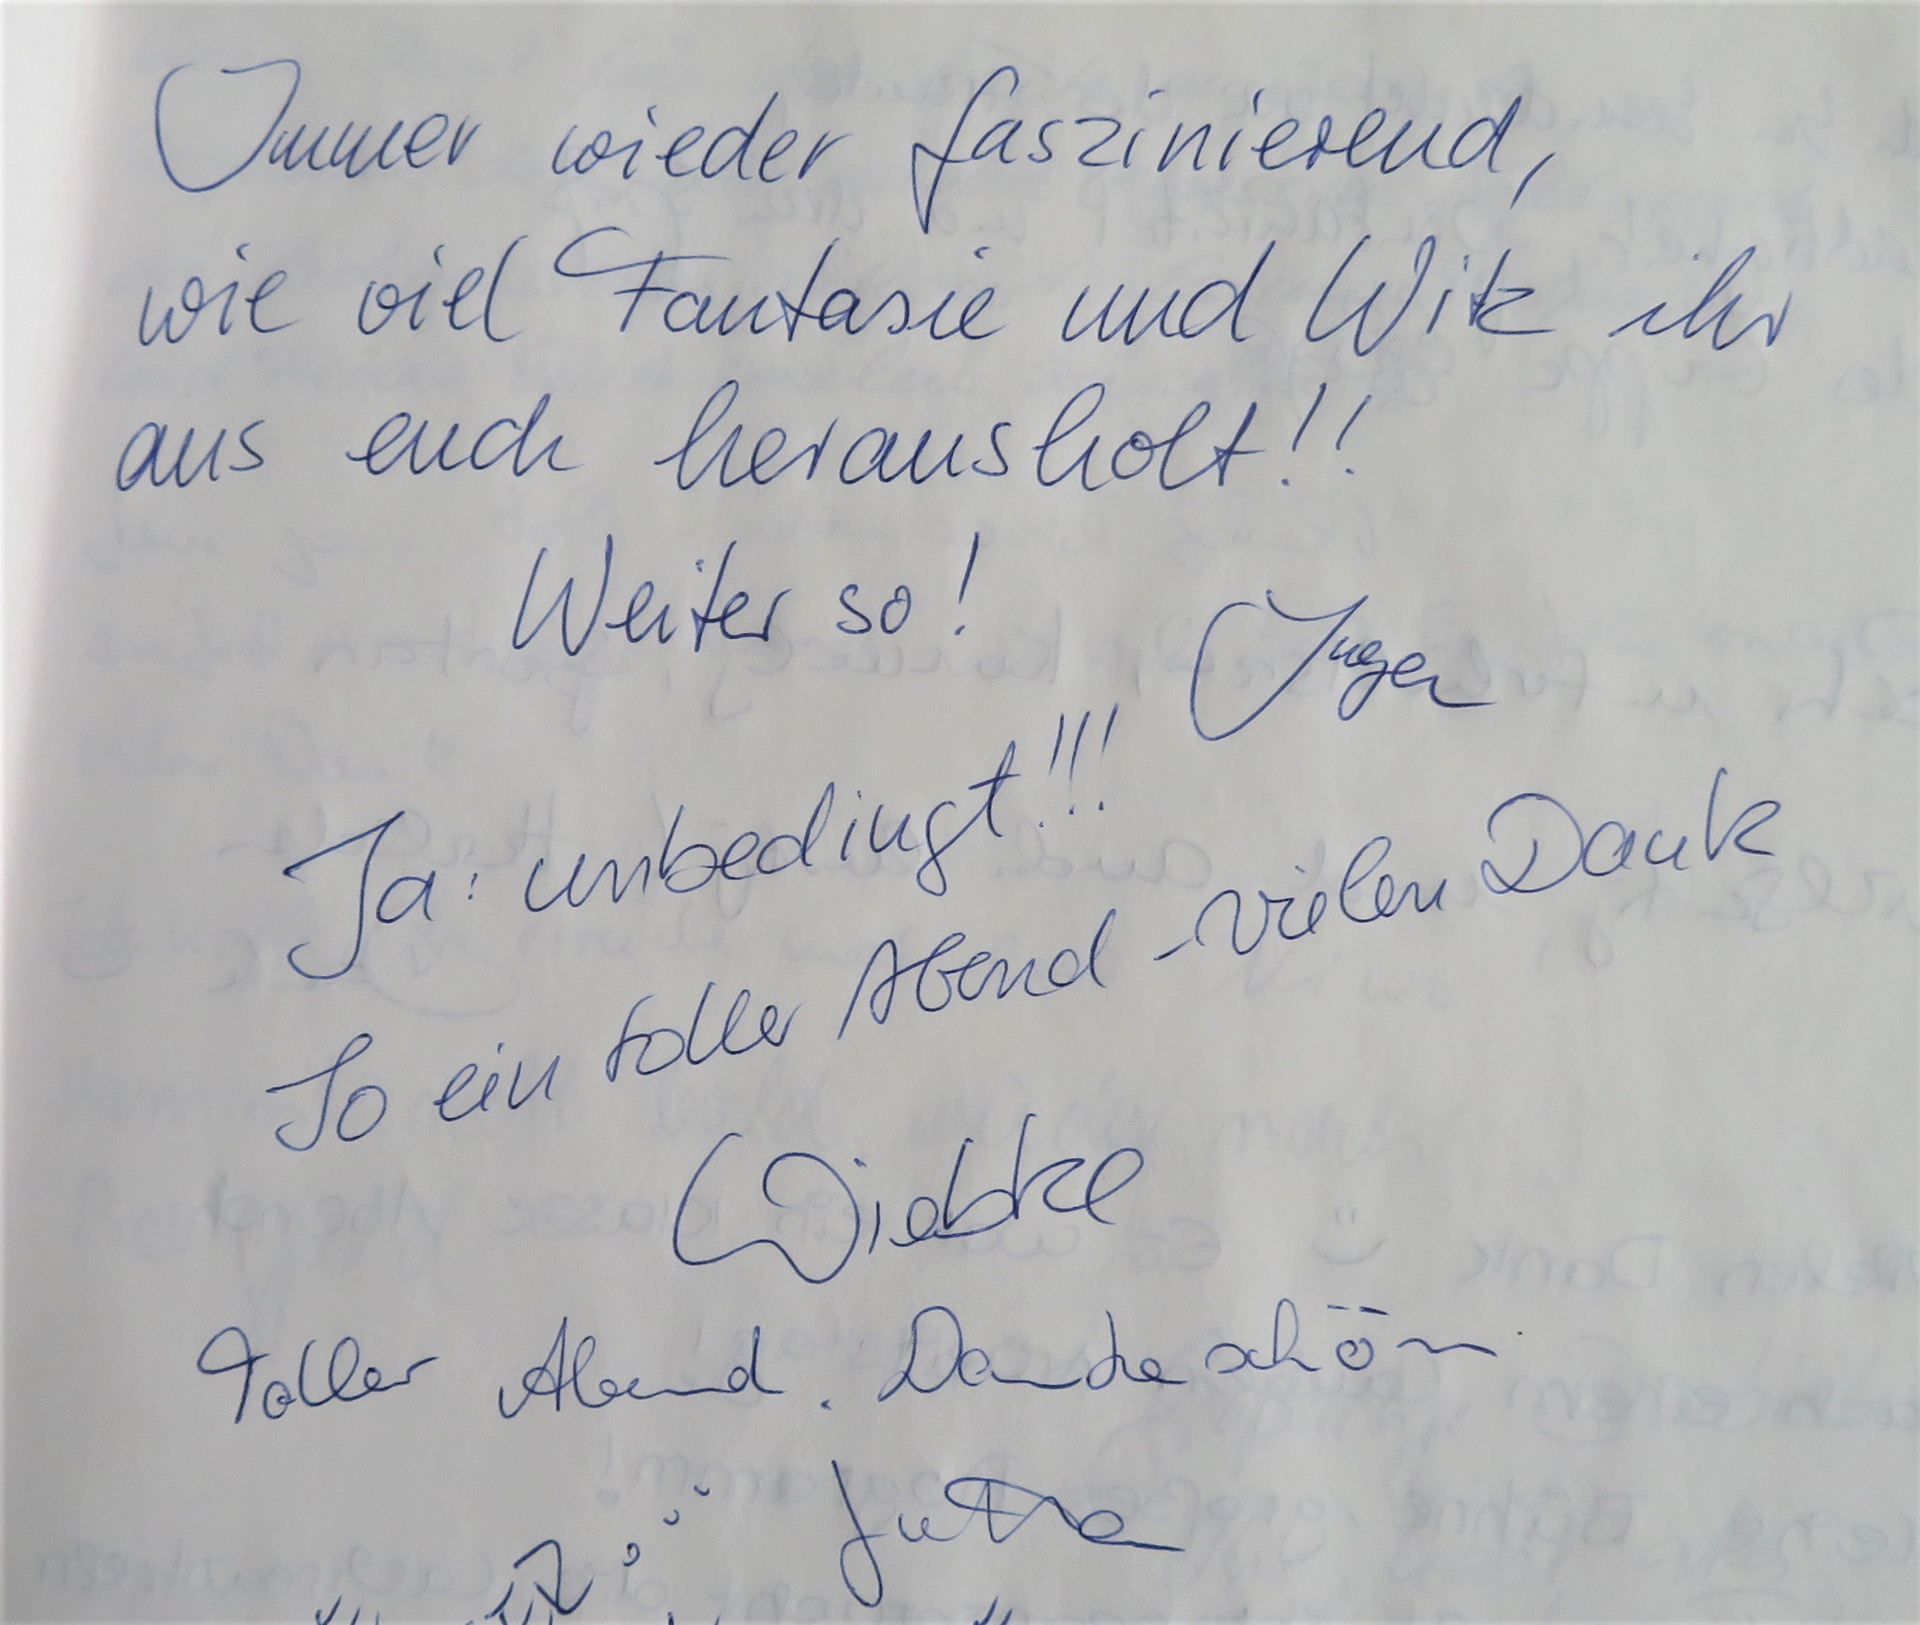 Immer wieder faszinierend,
wie viel Fantasie und Witz ihr
aus euch herausholt!!
Weiter so!
Ja: unbedingt!!!
So ein toller Abend - vielen Dank
Wiebke
Toller Abend. Dankeschön
Jutta